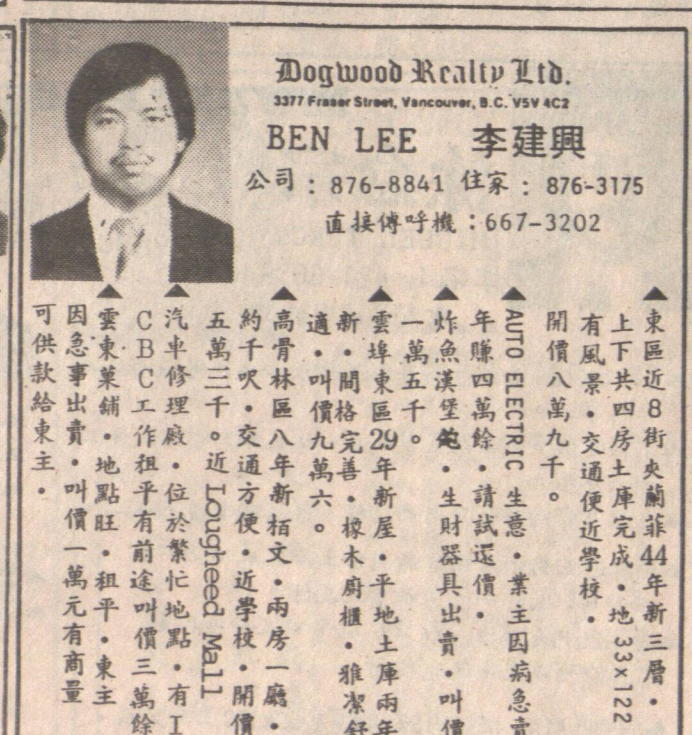 Dogwood Realty Ltd.
3377 Fraser Street, Vancouver, B.C. V5V 4C2
BEN LEE 李建興
公司：876-8841 住家：876-3175
直接傅呼機：667-3202
▲東區近8街夾蘭菲44年新三層・
上下共四房土庫完成・地33x122
有風景・交通便近學校・
開價八萬九千。
▲AUTO ELECTRIC 生意・業主因病急賣
年賺四萬餘・請試還價・
▲炸魚漢堡包・生財器具出賣・叫價
一萬五千。
▲雲埠東區29年新屋・平地土庫兩年
新・間格完善・橡木廚櫃・雅潔舒
適・叫價九萬六。
▲高骨林區八年新栢文・兩房一廳・
約千呎・交通方便・近學校・開價
五萬三千。近 Lougheed Mall
▲汽車修理廠・位於繁忙地點・有I
CBC工作租平有前途叫價三萬餘
▲雲東菓舖・地點旺・租平・東主
因急事出賣・叫價一萬元有商量
可供款給東主・